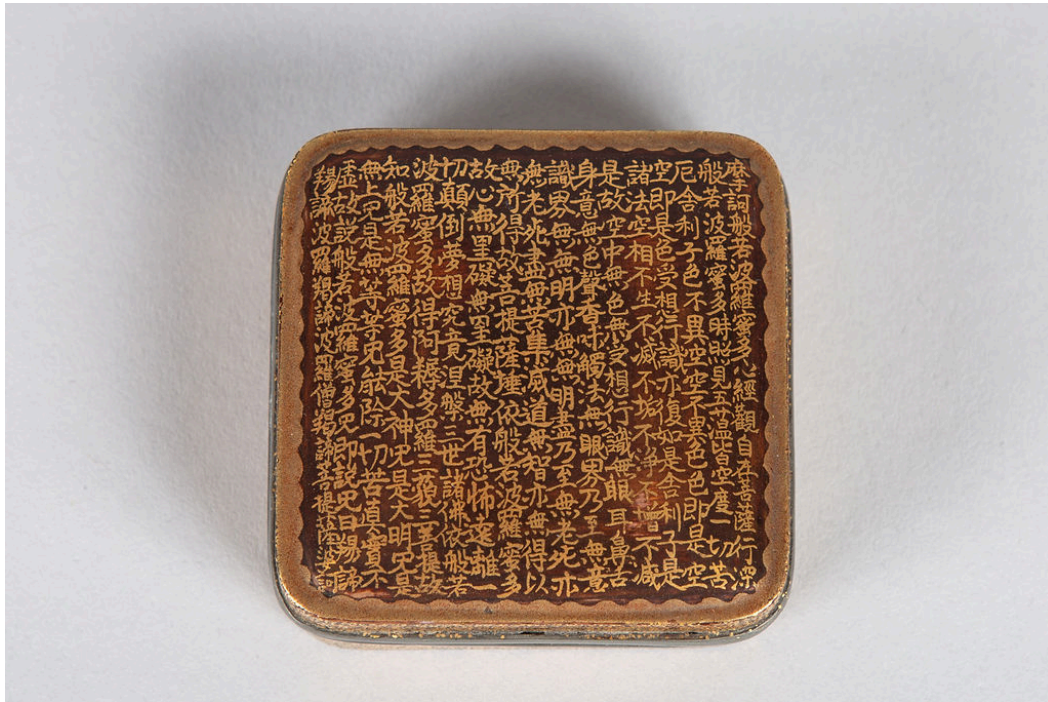 摩訶般若波羅蜜多心經觀自在菩薩行深
般若波羅蜜多時照見五蘊皆空度一切苦
厄舍利子色不異空空不異色色即是空
空即是色受想行識亦復如是舍利子是
諸法空相不生不滅不垢不淨不增不減
是故空中無色無受想行識無眼耳鼻舌
身意無色聲香味觸法無眼界乃至無意
識界無無明亦無無明盡乃至無老死亦
無老死盡無苦集滅道無智亦無得以
無所得故菩提薩埵依般若波羅蜜多
故心無罣礙無罣礙故無有恐怖遠離一
切顛倒夢想究竟涅槃三世諸佛依般若
波羅蜜多故得阿耨多羅三藐三菩提故
知般若波羅蜜多是大神咒是大明咒是
無上咒是無等等咒能除一切苦真實不
虛故說般若波羅蜜多咒即說咒曰羯諦
羯諦波羅羯諦波羅僧羯諦菩提薩婆訶